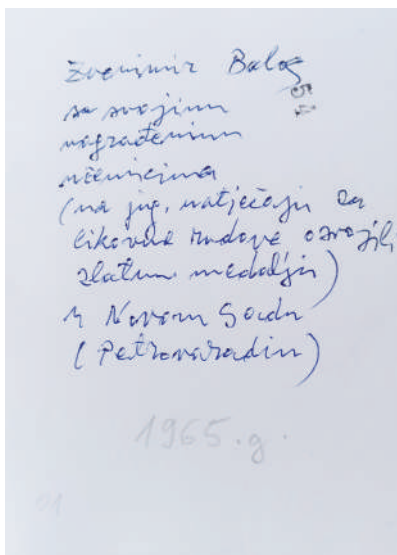 Zvonimir Balog
54
sa svojim
nagrađenim
učenicima
(na jug. natječaju za
likovne radove osvojili
zlatnu medalju)
u Novom Sadu
(Petrovaradin)
1965.g.